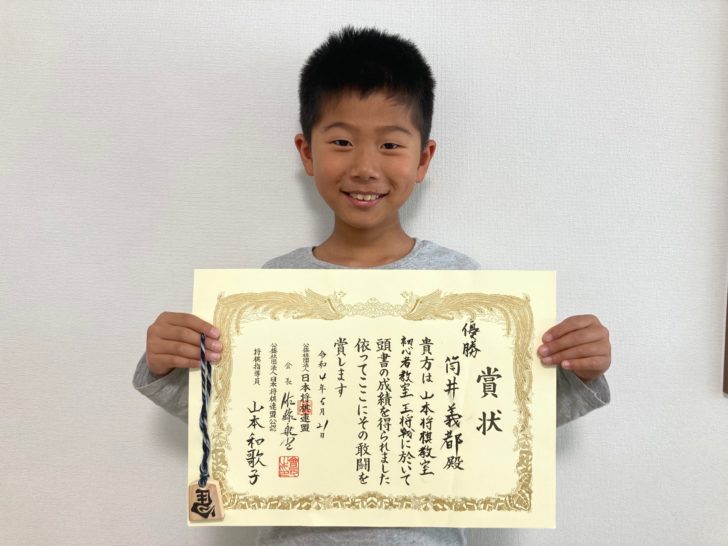 賞状
優勝
筒井義都殿
貴方は山本将棋教室
初心者教室王将戦に於いて
頭書の成績を得られました
依ってここにその敢闘を
賞します
令和4年5月21日
公益社団法人日本将棋連盟
会長 佐藤康光
公益社団法人日本将棋連盟公認
将棋指導員
山本和歌子